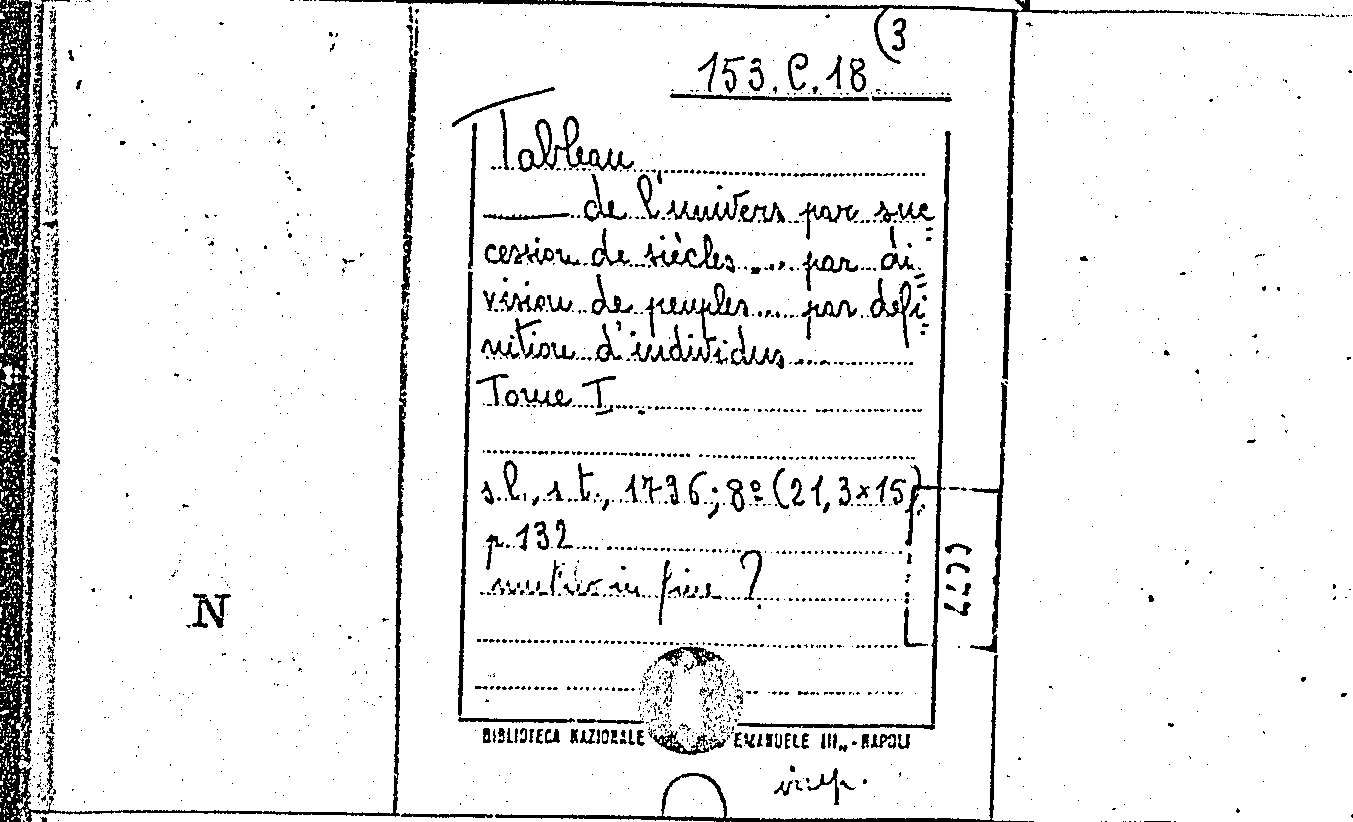 (3
153.C.18
Tableau
de l'univers par suc
cession de siècles.... par di
vision de peuples.... par défi
nition d'individus....
Tome I.
s.l., s.t., 1736; 8º (21,3x15);
p. 132
mutilo in fine?
N
BIBLIOTECA NAZIONALE EMANUELE III„ - NAPOLI